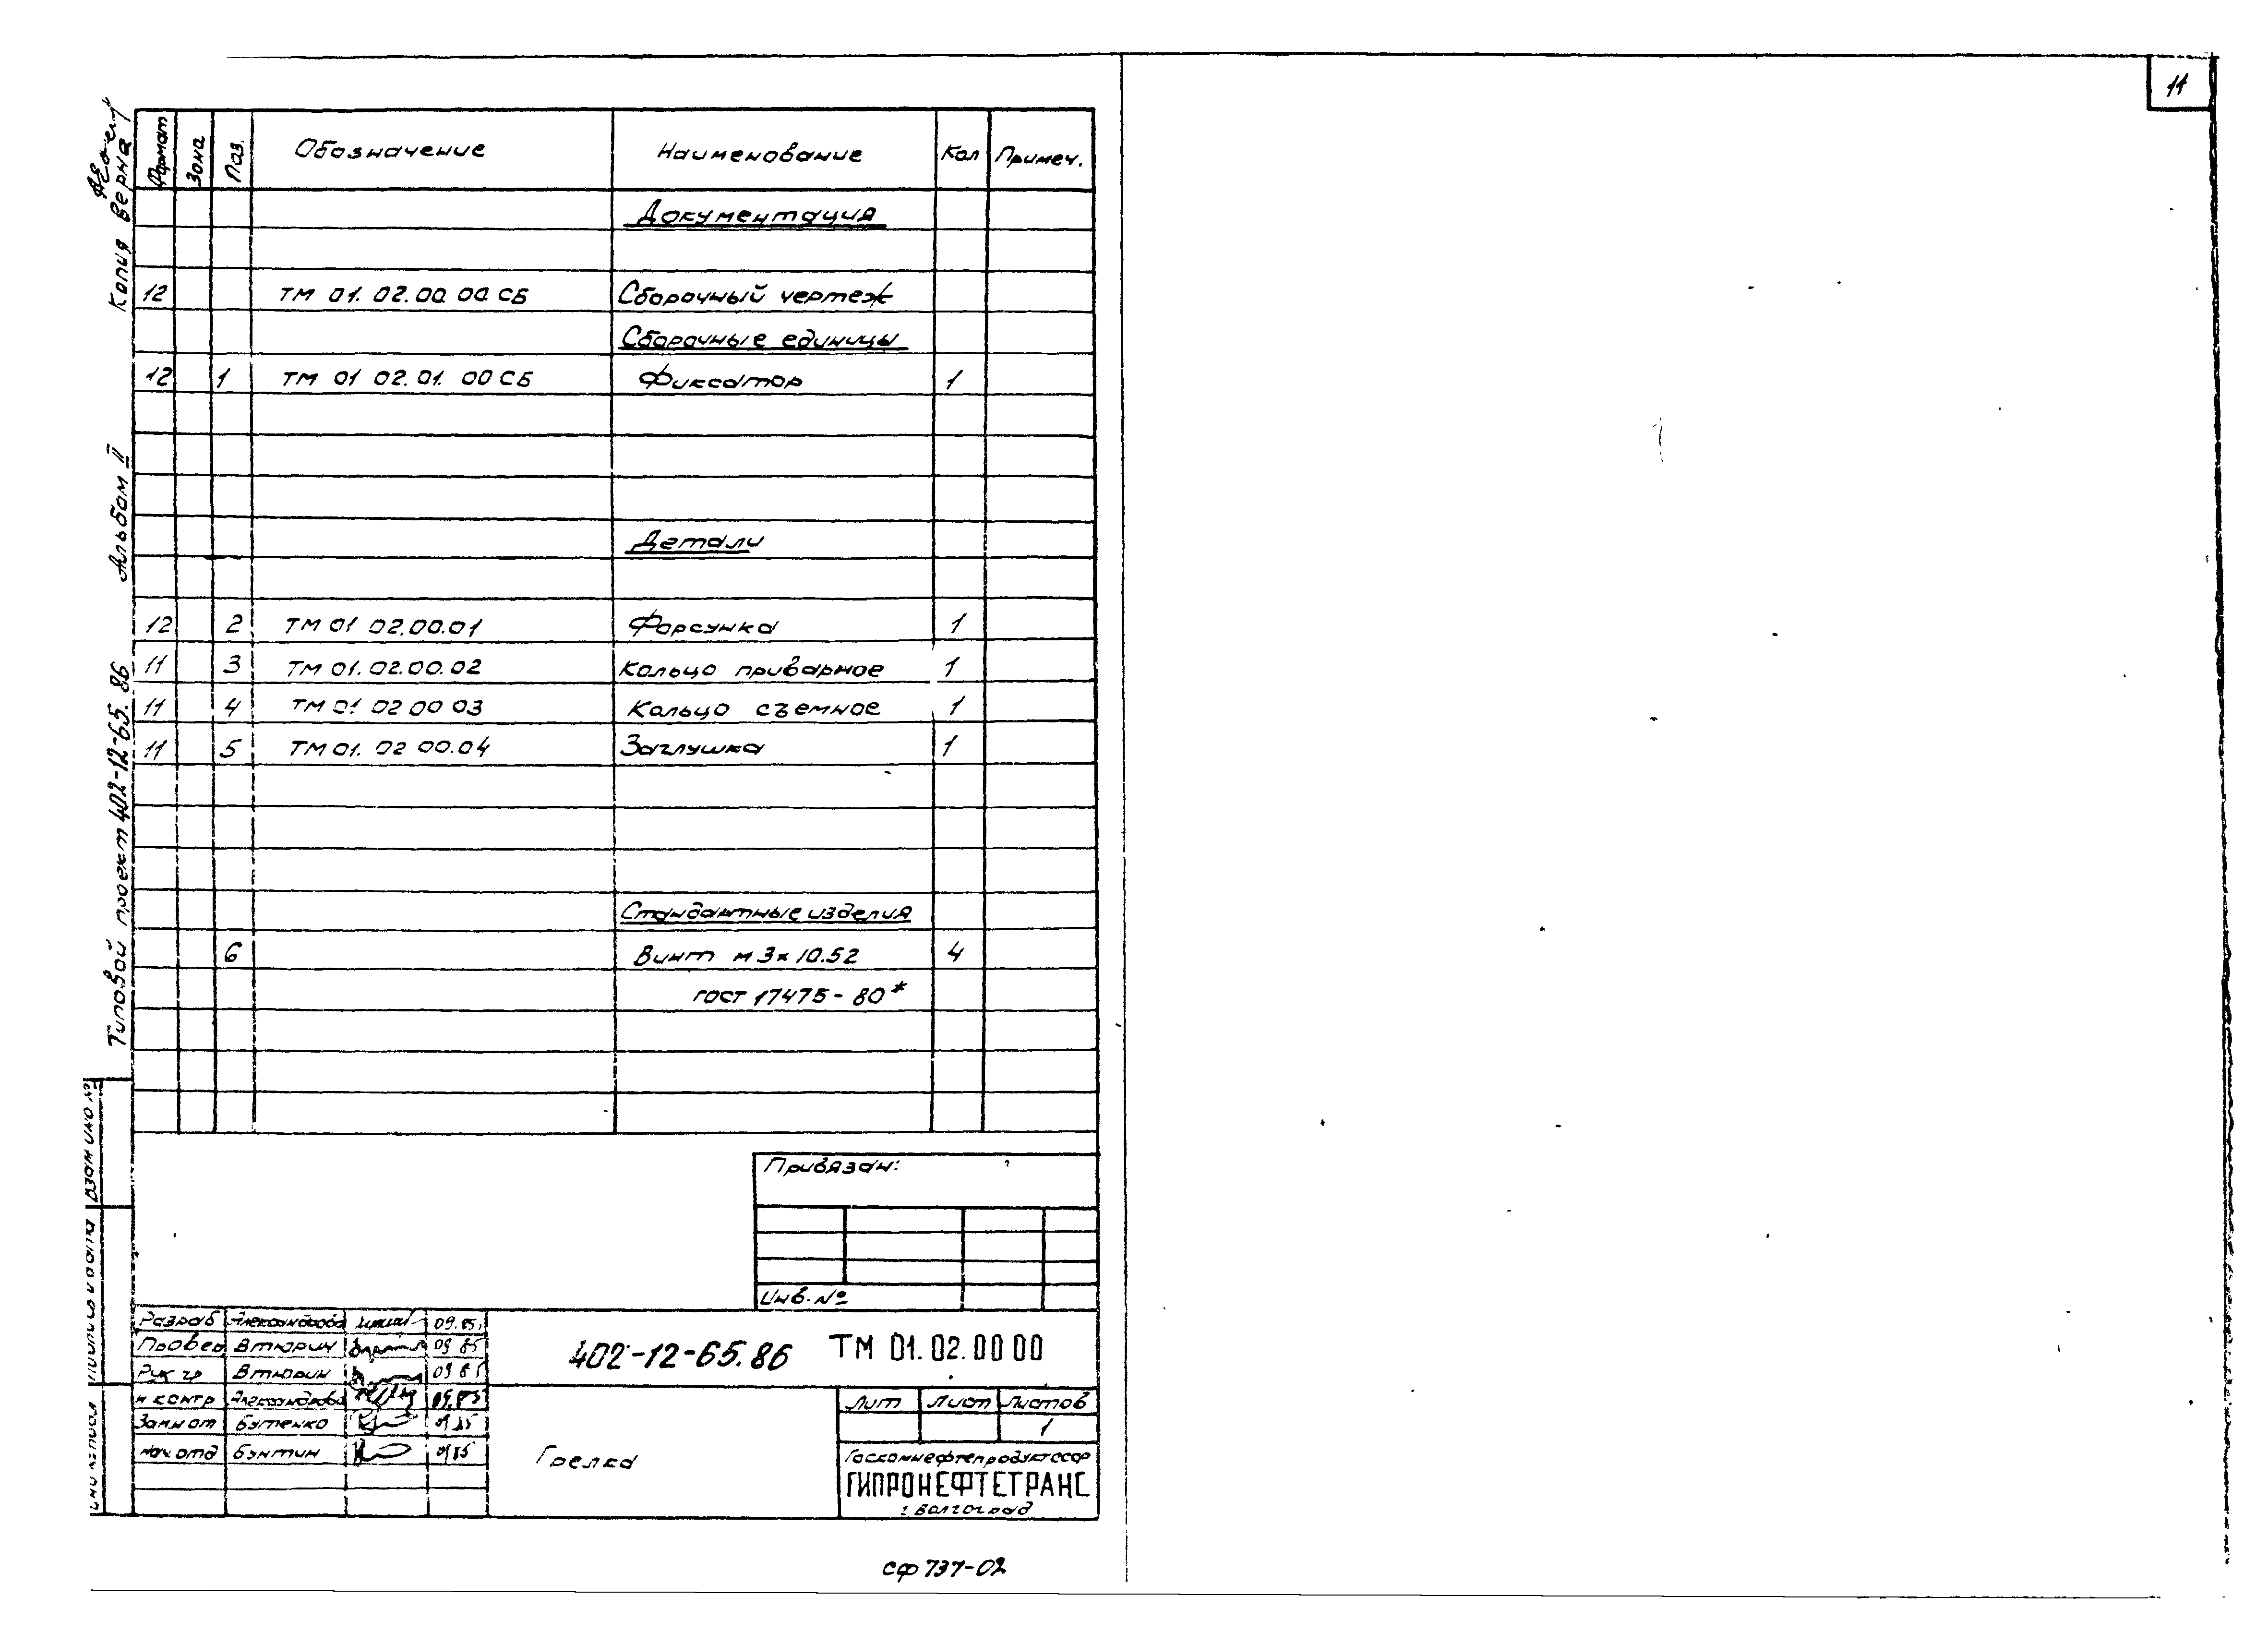 11
Формат Зона Поз. Обозначение Наименование Кол Примеч.
Документация
12 ТМ 01. 02. 00. 00. СБ Сборочный чертеж
Сборочные единицы
12 1 ТМ 01 02. 01. 00 СБ Фиксатор 1
Детали
12 2 ТМ 01 02.00.01 Форсунка 1
11 3 ТМ 01. 02.00.02 Кольцо приварное 1
11 4 ТМ 01 02 00 03 Кольцо съемное 1
11 5 ТМ 01. 02 00.04 Заглушка 1
Стандартные изделия
6 Винт м 3х10.52 4
гост 17475-80*
Копия верна
Альбом II
Типовой проект 402-12-65.86
Привязан:
Инв. №
Разраб Александрова 09.85.
Провер Втюрин 09 85
Рук гр Втюрин 09 85
н контр Александрова 09.85
Зам н от Бутенко 09 85
нач отд Бунтин 09 85
402-12-65.86 ТМ 01.02.00 00
Грелка
Лит Лист Листов
1
Госкомнефтепродукт СССР
ГИПРОНЕФТЕТРАНС
г. Волгоград
сф 737-02